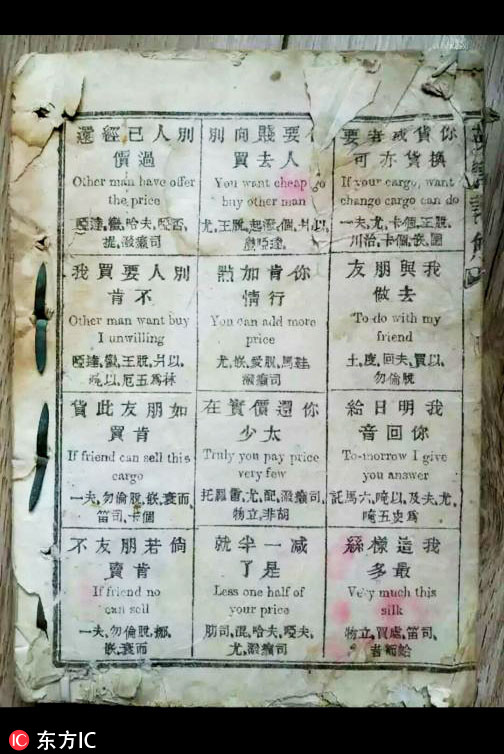 你貨或者要
換貨亦可
If your cargo, want
chango cargo can do
一夫,尤,卡個,王脫,
要賤向別
人去買
You want cheap go
buy other man
尤,王脫,起潑,個,爿以,
別人已經還
過價
Other man have offer
the price
啞達,蠻,哈夫,啞否,
提,潑癩司
我與朋友
去做
To do with my
friend
土,度,夫回,買以,
勿倫脫
你肯加點
行情
You can add more
price
尤,嵌,愛脫,馬鞋,
潑癩司
別人要買我
不肯
Other man want buy
I unwilling
啞達,蠻,王脫,爿以,
我明日給
你回音
To-morrow I give
you answer
託馬六,唵以,及夫,尤,
唵五史為
你還價實在
太少
Truly you pay price
very few
托羅雷,尤,配,潑癩司,
物立,非胡
如朋友此貨
肯買
If friend can sell this
cargo
一夫,勿倫脫,嵌,衰而,
笛司,卡個
我這樣絲
最多
Very much this
silk
物立,買處,笛司,
减一半就
是了
Less one half of
your price
肋司,混,哈夫,啞夫,
尤,潑癩司
倘若朋友不
肯賣
If friend no
can sell
一夫,勿倫脫,挪,
嵌,衰而
东方IC